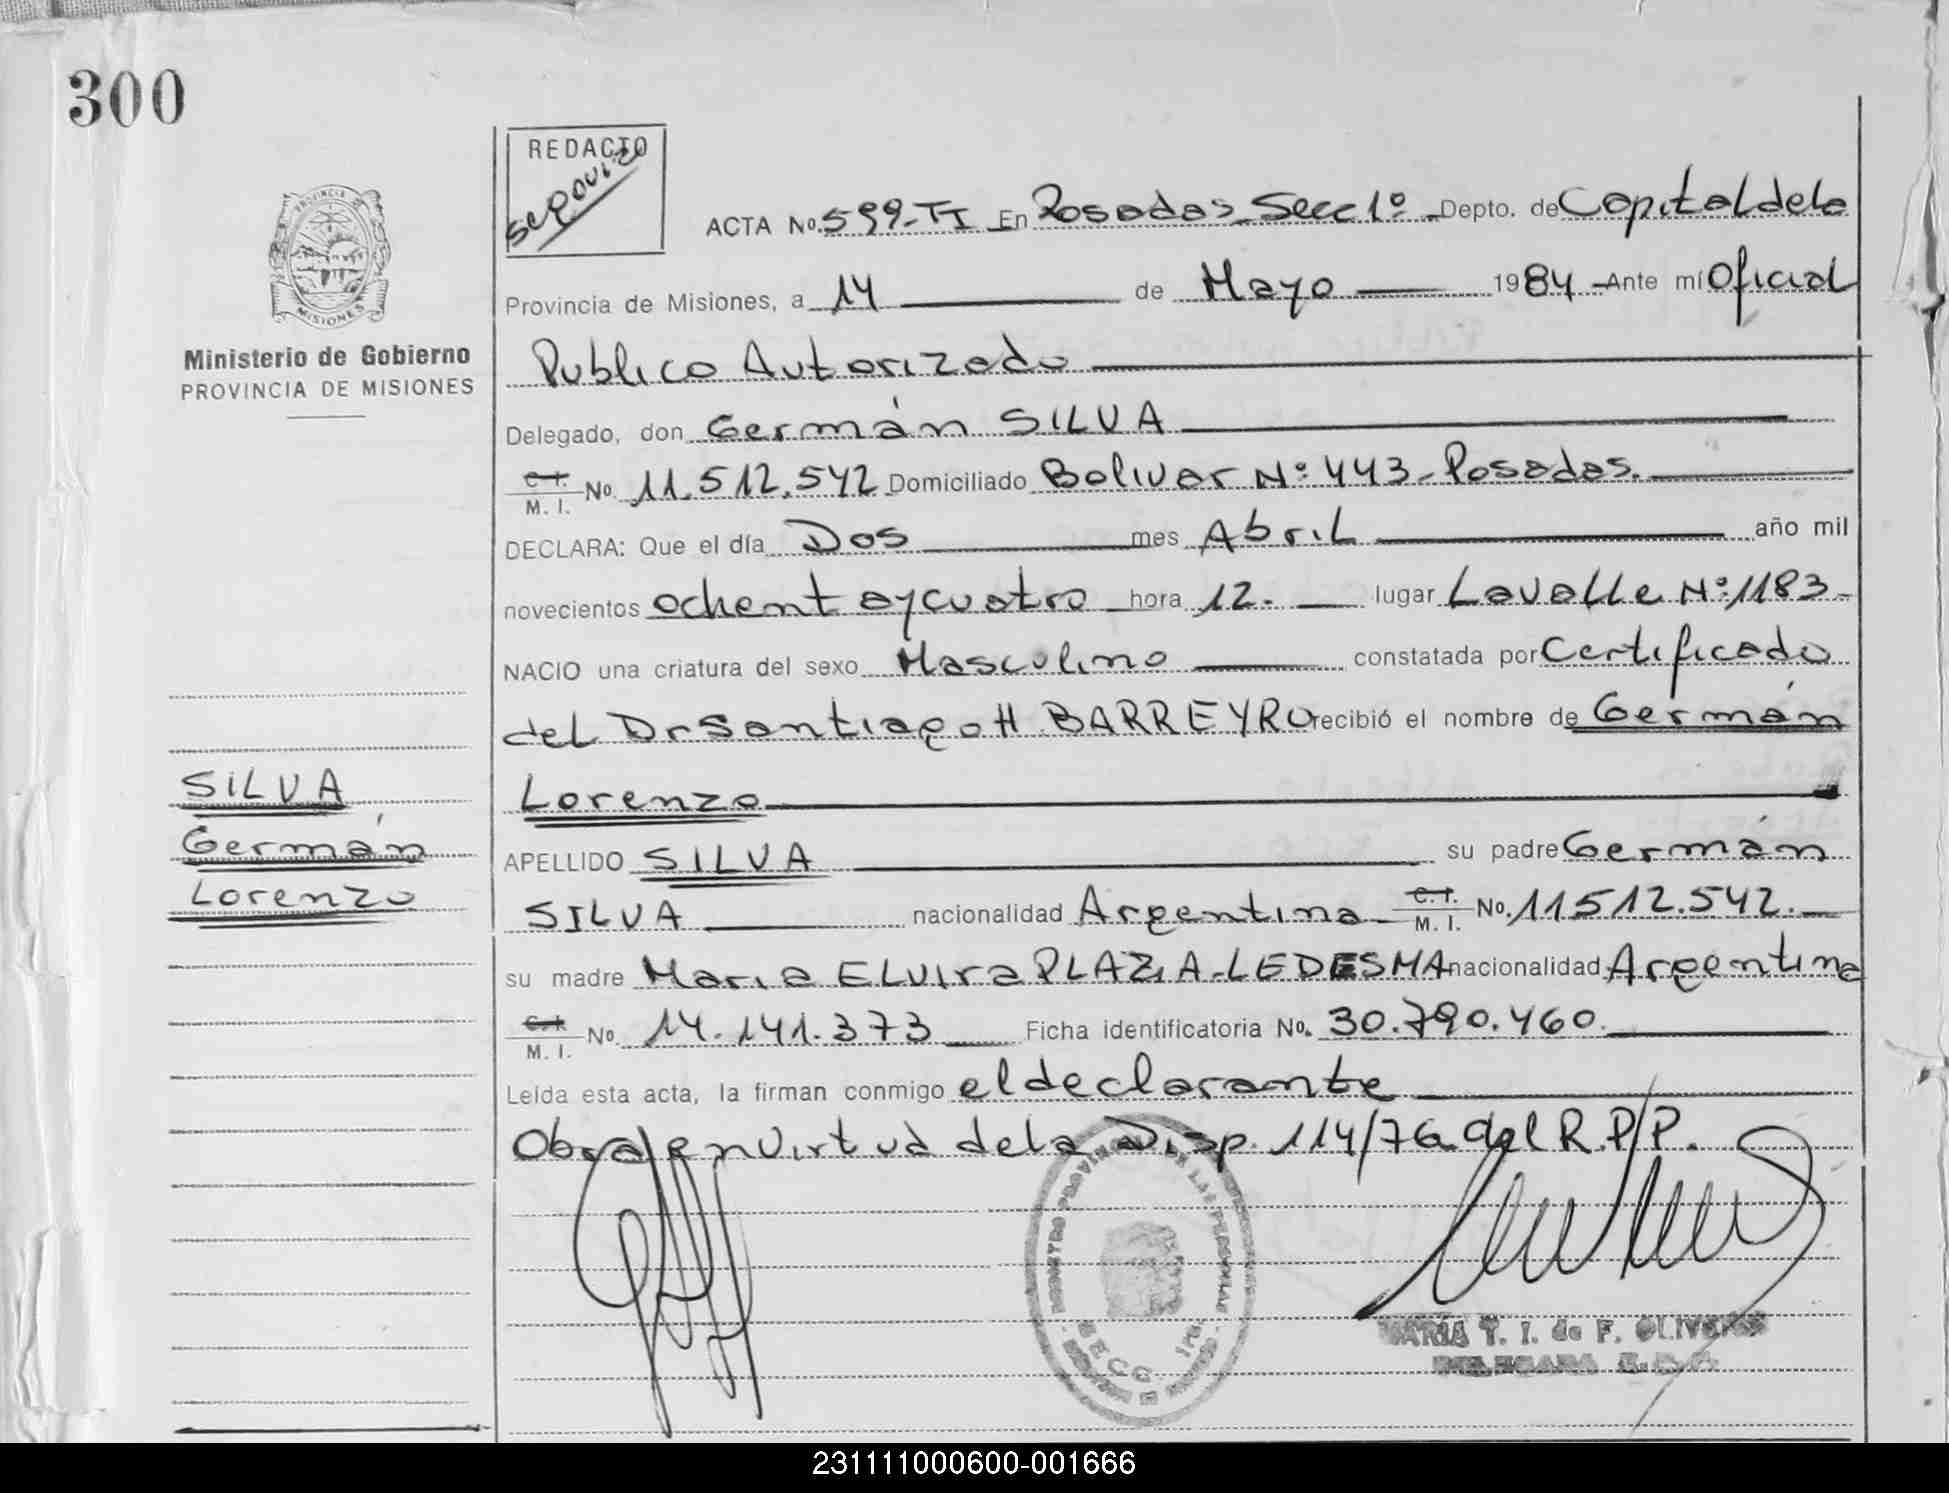 300
REDACTO
PROVINCIA
MISIONES
Ministerio de Gobierno
PROVINCIA DE MISIONES
ACTA No. 599-TI En Posadas Secc 1º Depto. de Capital de la
Provincia de Misiones, a 14 de Mayo 1984 Ante mí Oficial
Publico Autorizado
Delegado, don Germán SILVA
C. I. M. I. No. 11.512.542 Domiciliado Bolivar Nº 443-Posadas.
DECLARA: Que el día Dos mes Abril año mil
novecientos ochenta y cuatro hora 12. lugar Lavalle Nº 1183-
NACIO una criatura del sexo Masculino constatada por Certificado
del Dr Santiago H. BARREYRO recibió el nombre de Germán
Lorenzo
SILVA
Germán
Lorenzo
APELLIDO SILVA su padre Germán
SILVA nacionalidad Argentina C. I. M. I. No. 11512.542.
su madre Maria ELVIra PLAZA-LEDESMA nacionalidad Argentina
C. I. M. I. No. 14.141.373 Ficha identificatoria No. 30.790.460.
Leída esta acta, la firman conmigo el declarante
Obra en virtud de la Disp. 114/76 del R.P/P.
REGISTRO PROVINCIAL DE LAS PERSONAS
SECC. 1ra.
MARIA T. I. de F. OLIVEIRA
DELEGADA R.P.P.
231111000600-001666